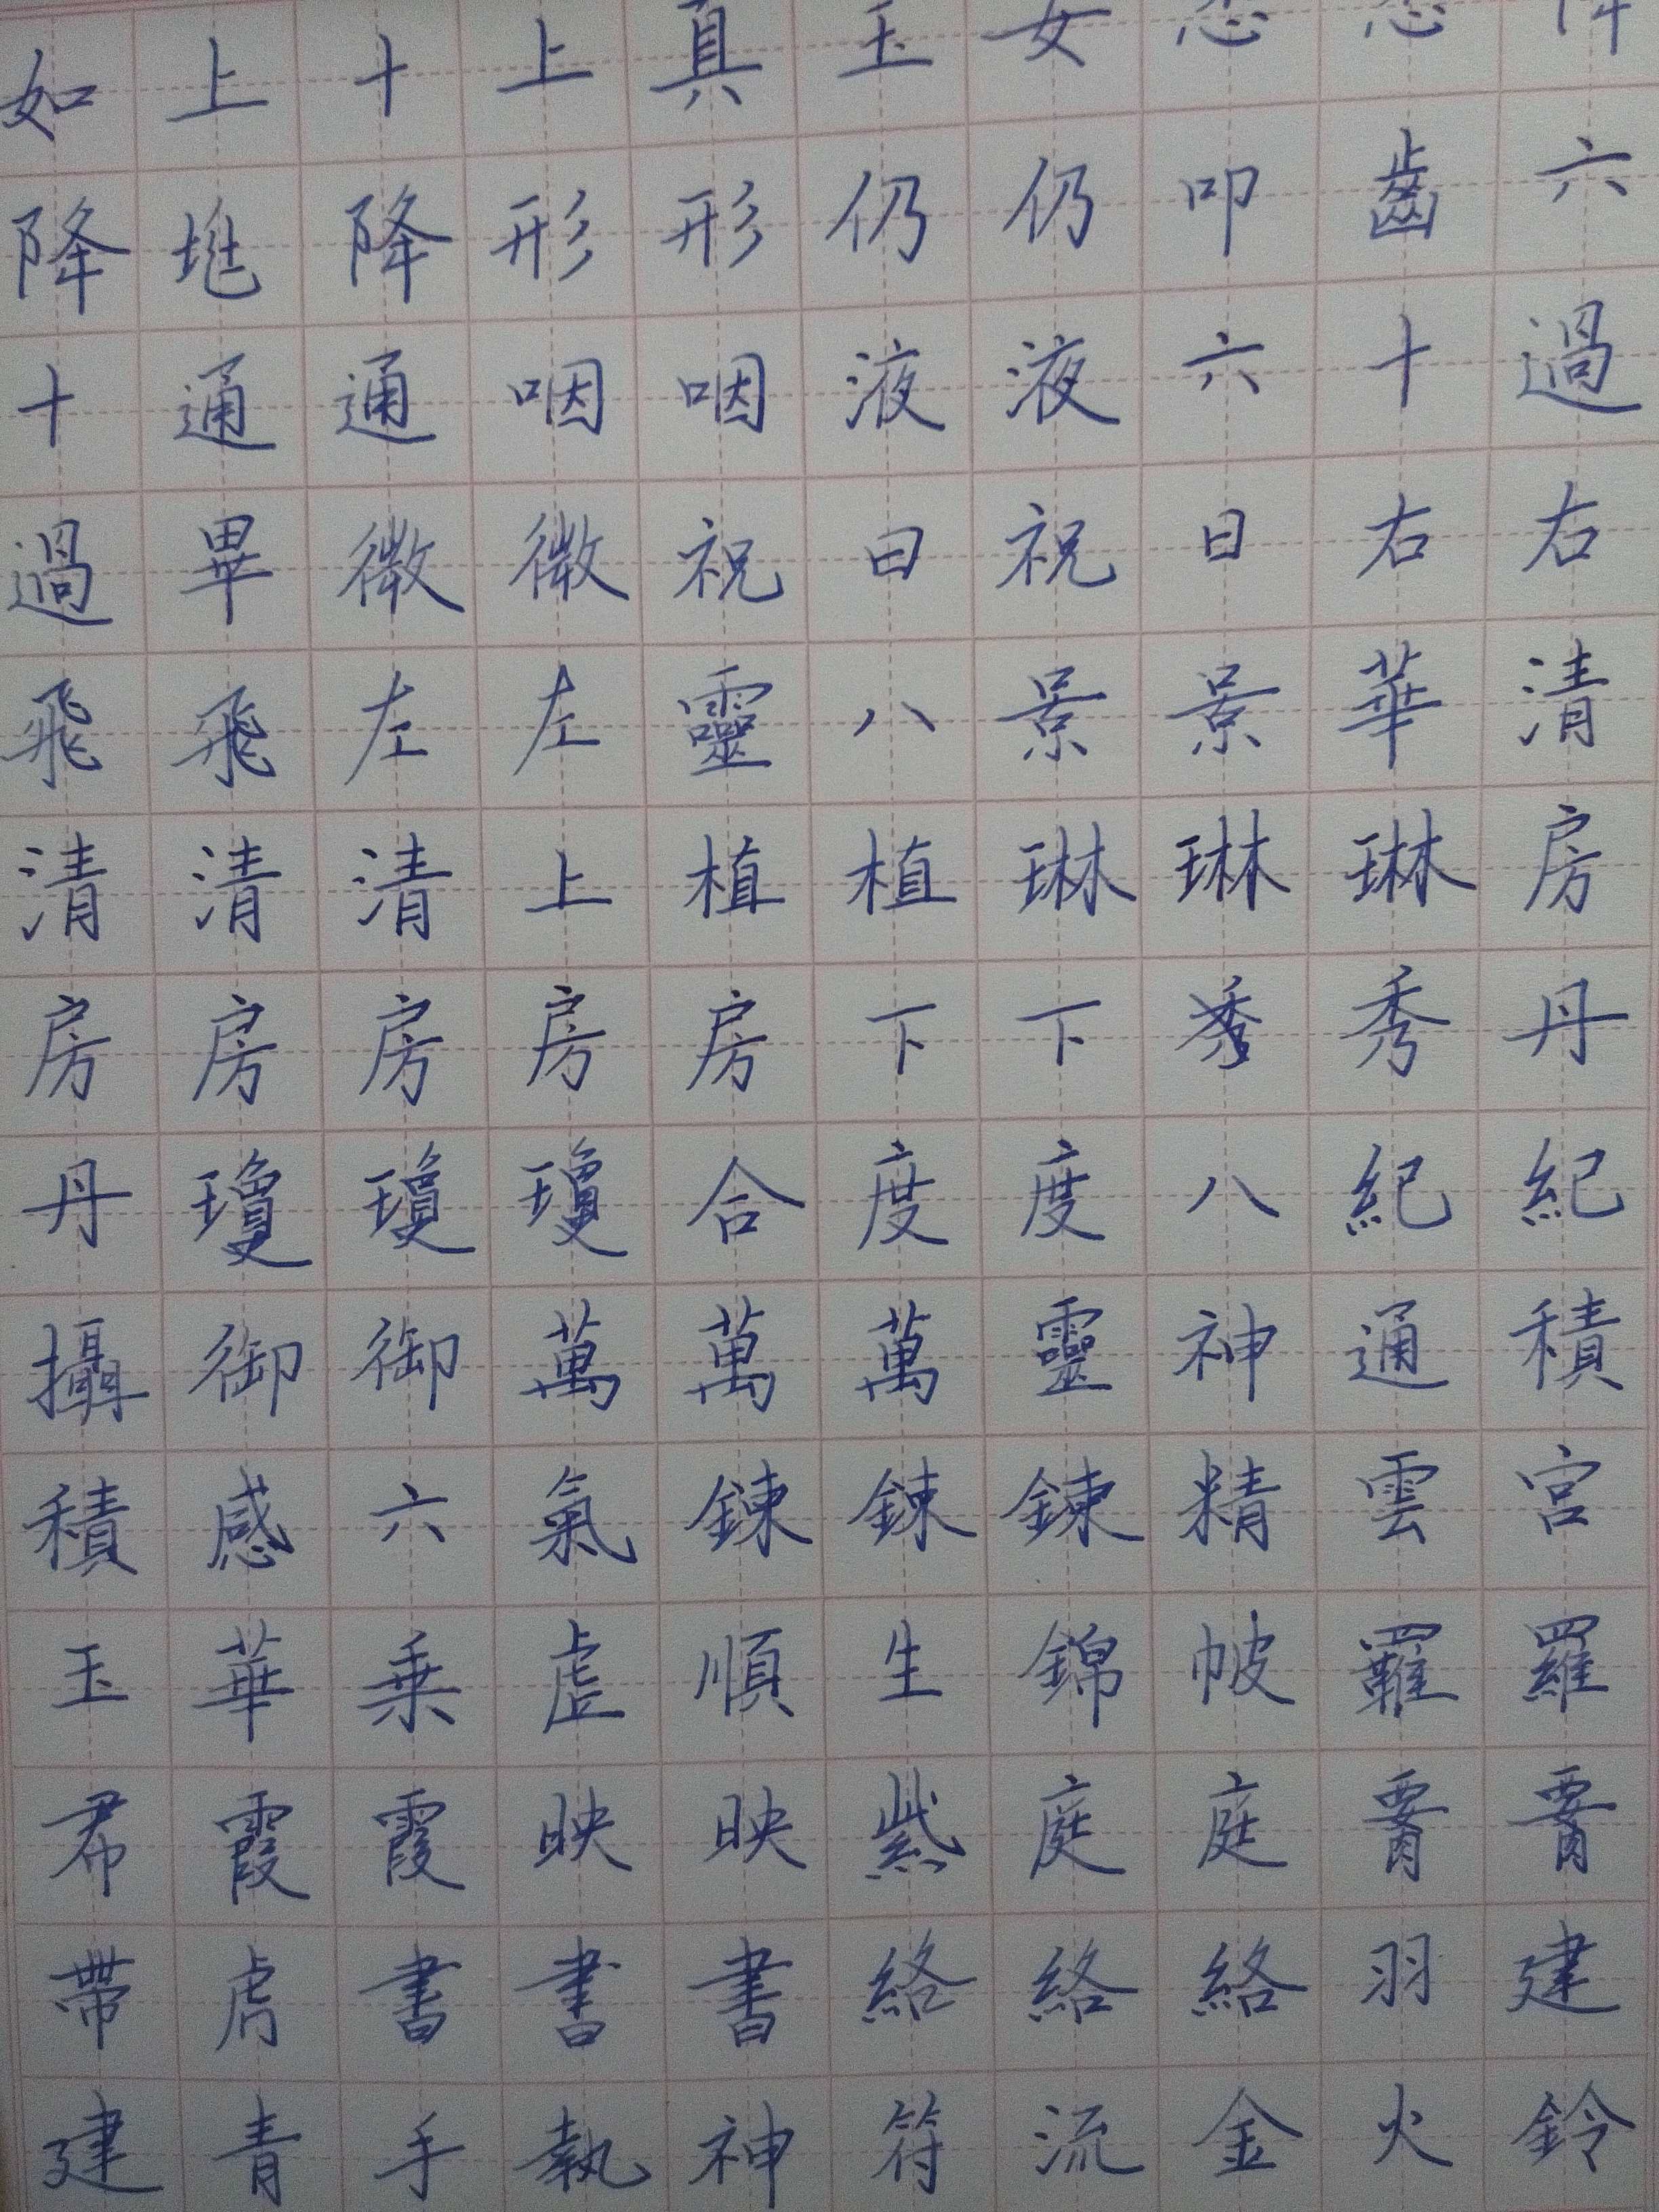 如上十上真玉女忽忽降
降𡊨降形形仍仍叩齒六
十通通咽咽液液六十過
過畢微微祝曰祝日右右
飛飛左左靈八景景華清
清清清上植植琳琳琳房
房房房房房下下秀秀丹
丹瓊瓊瓊合度度八紀紀
攝御御萬萬萬靈神通積
積感六氣鍊鍊鍊精雲宮
玉華乘虛順生錦帔羅羅
帬霞霞映映紫庭庭腰腰
帶虎書書書絡絡絡羽建
建青手執神符流金火鈴